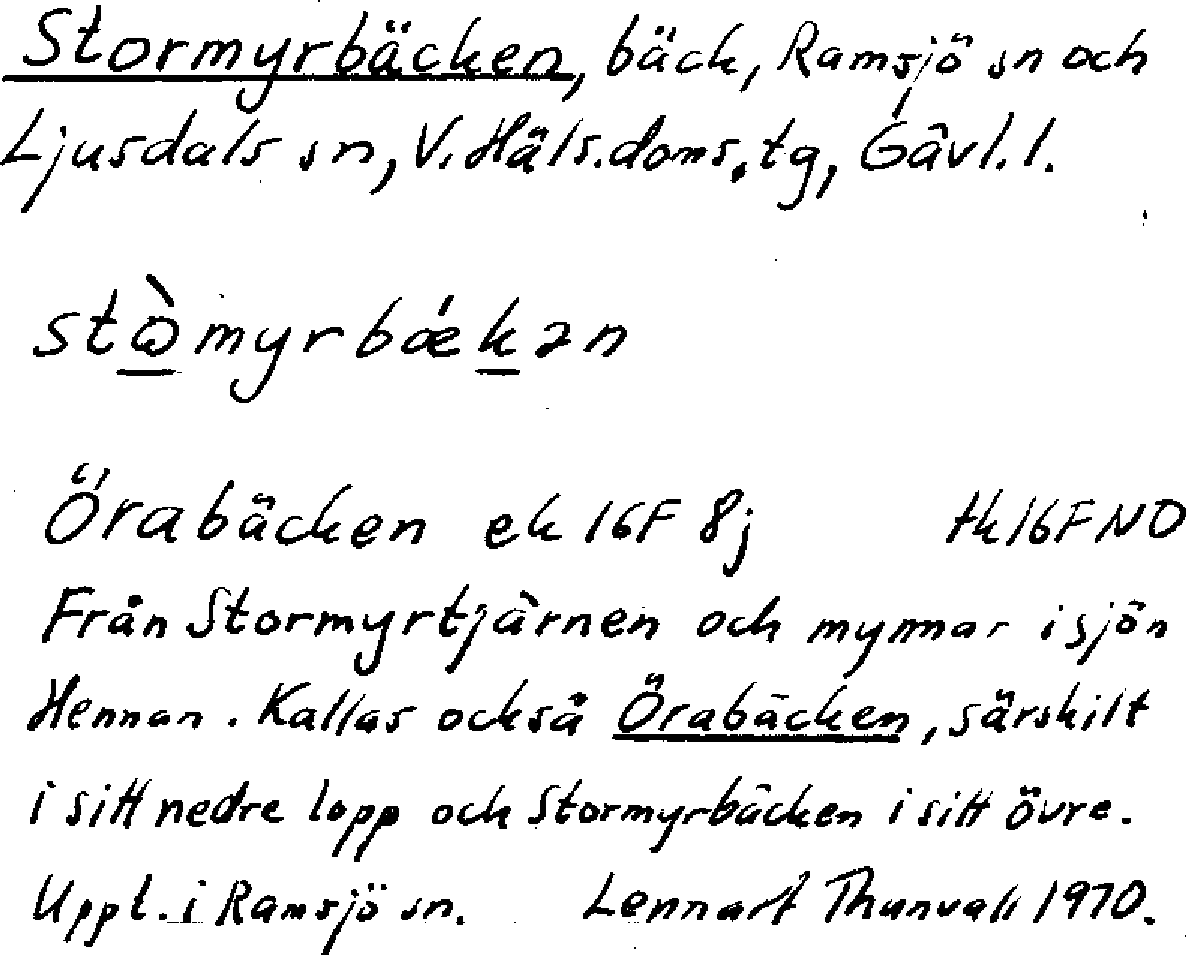 Stormyrbäcken, bäck, Ramsjö sn och
Ljusdals sn, V. Häls. doms. tg, Gävl. l.
stɷ̀myrbǽkən
Örabäcken ek 16F 8j Hk 16F NO
Från Stormyrtjärnen och mynnar i sjön
Hennan. Kallas också Örabäcken, särskilt
i sitt nedre lopp och Stormyrbäcken i sitt övre.
Uppt. i Ramsjö sn. Lennart Thunvall 1970.